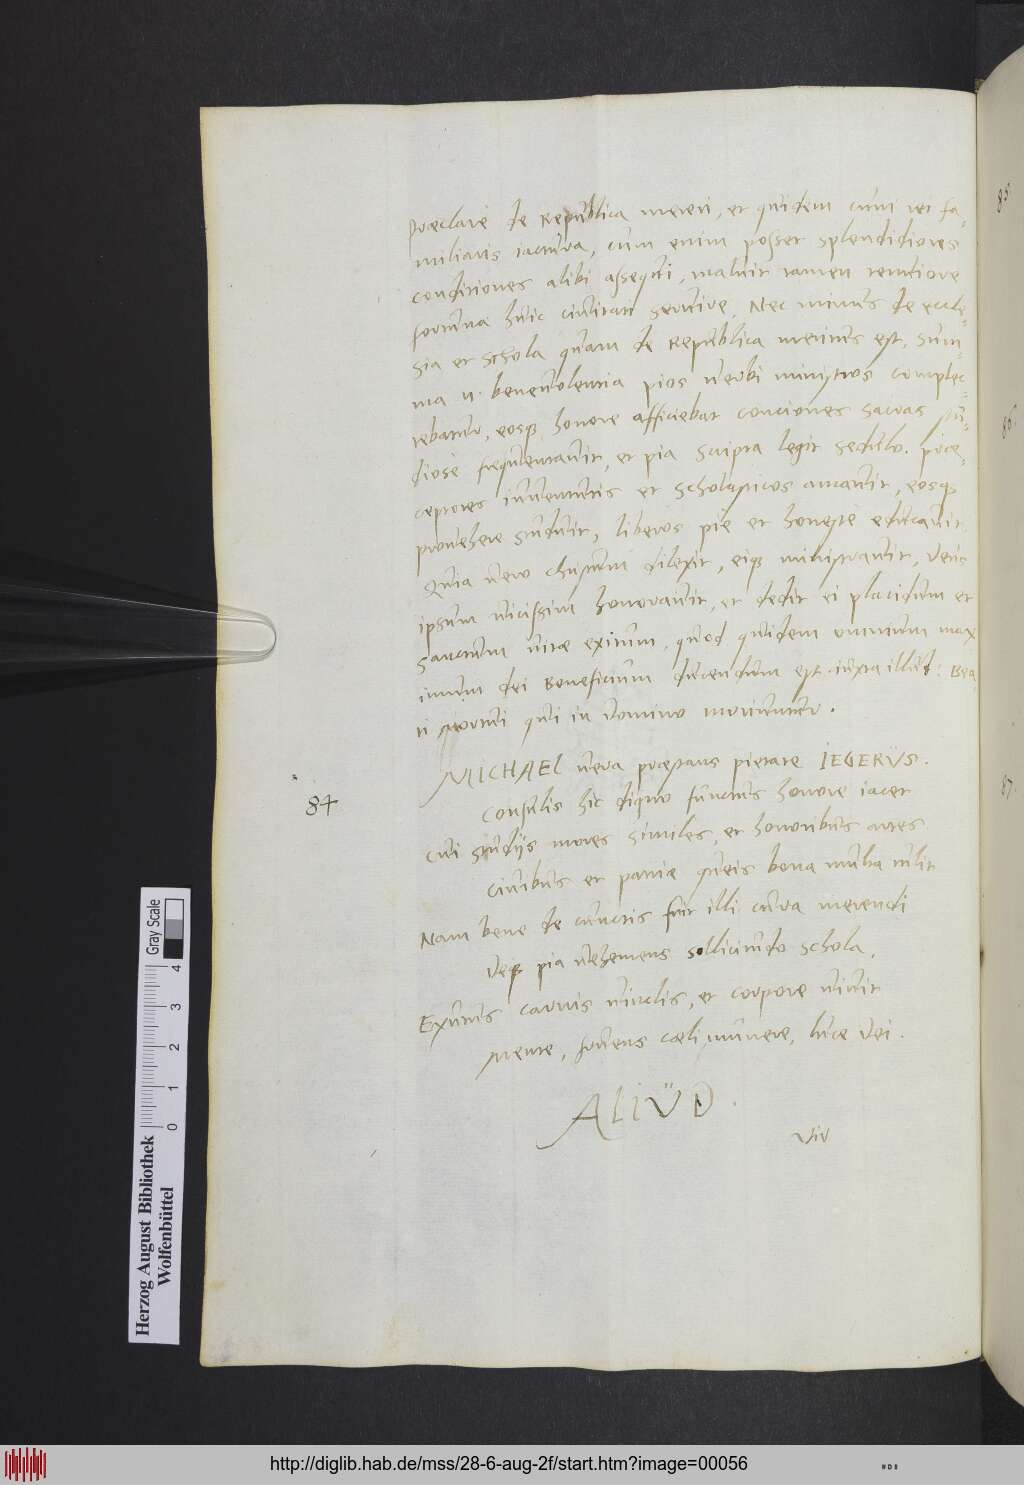 præclare de Republica mereri, et quidem cum rei fa-
miliaris iactura, cum enim posset splendidiores
conditiones alibi assequi, maluit tamen tenuiore
fortuna huic ciuitati seruire. Nec minus de eccle-
sia et schola quam de Republica meritus est, Sum-
ma n. beneuolentia pios uerbi ministros complec-
tebatur, eosq honore afficiebat conciones sacras stu-
diose frequentauit, et pia scripta legit sedulo. præ-
ceptores iuuentutis et scholasticos amauit, eosq
prouehere studuit, liberos pie et honeste educauit.
Quia uero christum dilexit, eiq ministrauit, Deus
ipsum uicissim honorauit, et dedit ei placidum et
sanctum uitæ exitum, quod quidem omnium max
imum dei Beneficium ducendum est. iuxta illud: Bea
ti mortui qui in Domino moriuntur.
84
MICHAEL uera præstans pietate IEGERUS.
Consulis hic digno functus honore iacet
Cui studijs mores similes, et honoribus artes
Ciuibus et patriæ queis bona multa tulit
Nam bene de cunctis fuit illi cura merendi
Deq pia uehemens sollicitudo schola,
Exutus carnis uinclis, et corpore uiuit
Mente, fouens cœli munere, luce Dei.
ALIUD.
Vir
85.
86.
87.
Herzog August Bibliothek
Wolfenbüttel
0 1 2 3 4
Gray Scale
http://diglib.hab.de/mss/28-6-aug-2f/start.htm?image=00056